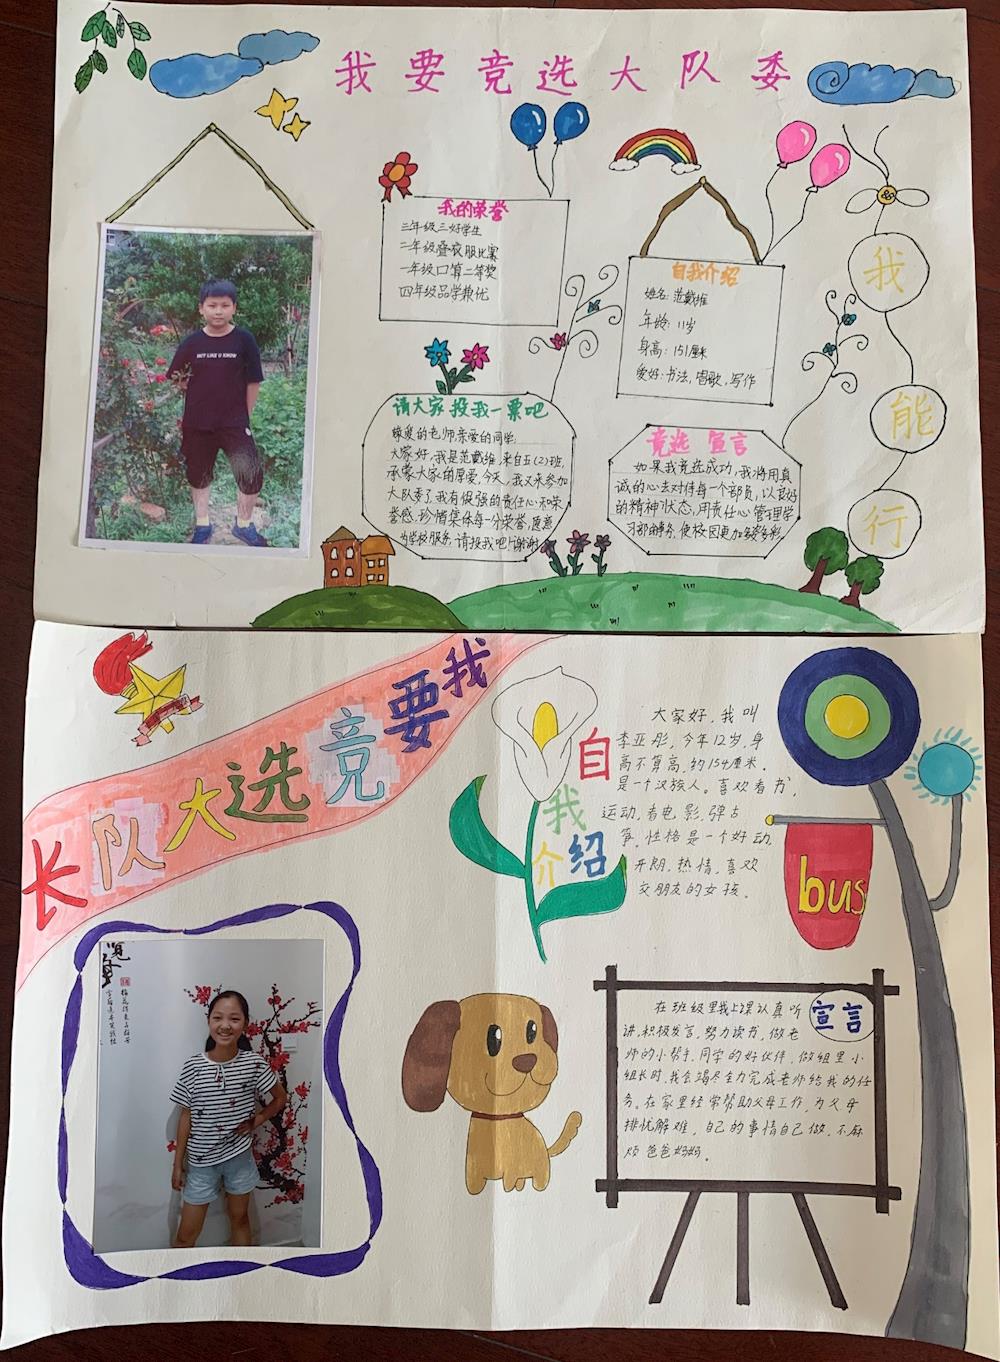 我要竞选大队委
我的荣誉
三年级三好学生
二年级叠衣服比赛
一年级口算二等奖
四年级品学兼优
自我介绍
姓名:范戴维
年龄:11岁
身高:151厘米
爱好:书法,唱歌,写作
NOT LIKE U KNOW
请大家投我一票吧
敬爱的老师亲爱的同学:
大家好,我是范戴维,来自五(2)班,
承蒙大家的厚爱,今天,我又来参加
大队委了,我有很强的责任心和荣
誉感,珍惜集体每一分荣誉,愿意
为学校服务,请投我吧!谢谢
竞选 宣言
如果我竞选成功,我将用真
诚的心去对待每一个部员,以良好
的精神状态,用责任心管理学
习部的事务,使校园更加多姿多彩。
我
能
行
我要竞选大队长
自我介绍
大家好,我叫
李亚彤,今年12岁,身
高不算高,约154厘米。
是一个汉族人。喜欢看书,
运动,看电影,弹古
筝,性格是一个好动,
开朗,热情,喜欢
交朋友的女孩。
bus
宣言
在班级里我上课认真听
讲,积极发言,努力读书,做老
师的小帮手,同学的好伙伴,做组里小
组长时,我会竭尽全力完成老师给我的任
务。在家里经常帮助父母工作,为父母
排忧解难,自己的事情自己做,不麻
烦爸爸妈妈。